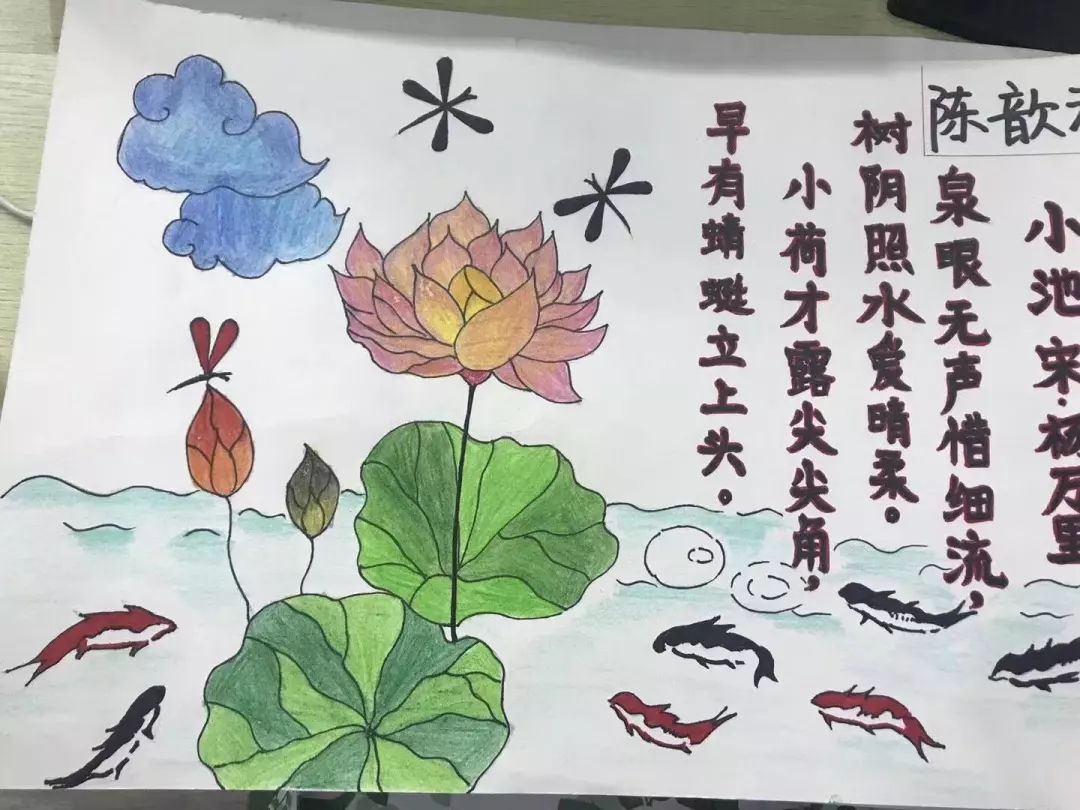 陈歆
小池 宋·杨万里
泉眼无声惜细流，
树阴照水爱晴柔。
小荷才露尖尖角，
早有蜻蜓立上头。